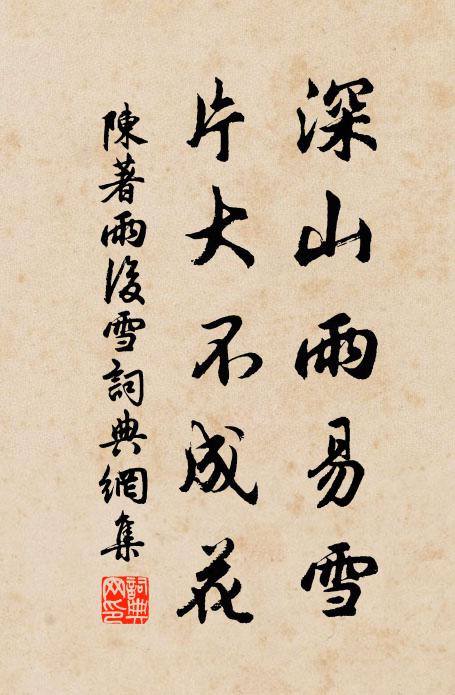 深山雨易雪
片大不成花
陳著雨後雪詞典網集
詞典網印